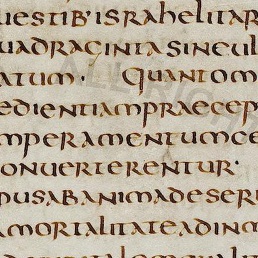 UESTIB·ISRAHELITAR
UADRACINTASINGUL
ATUM· QUANTOM
EDIENTIAMPRAECEP
MPERAMENTUMCE
ONUERTERENTUR·
PUSABANIMADESERI
AMORTALITATEADINM